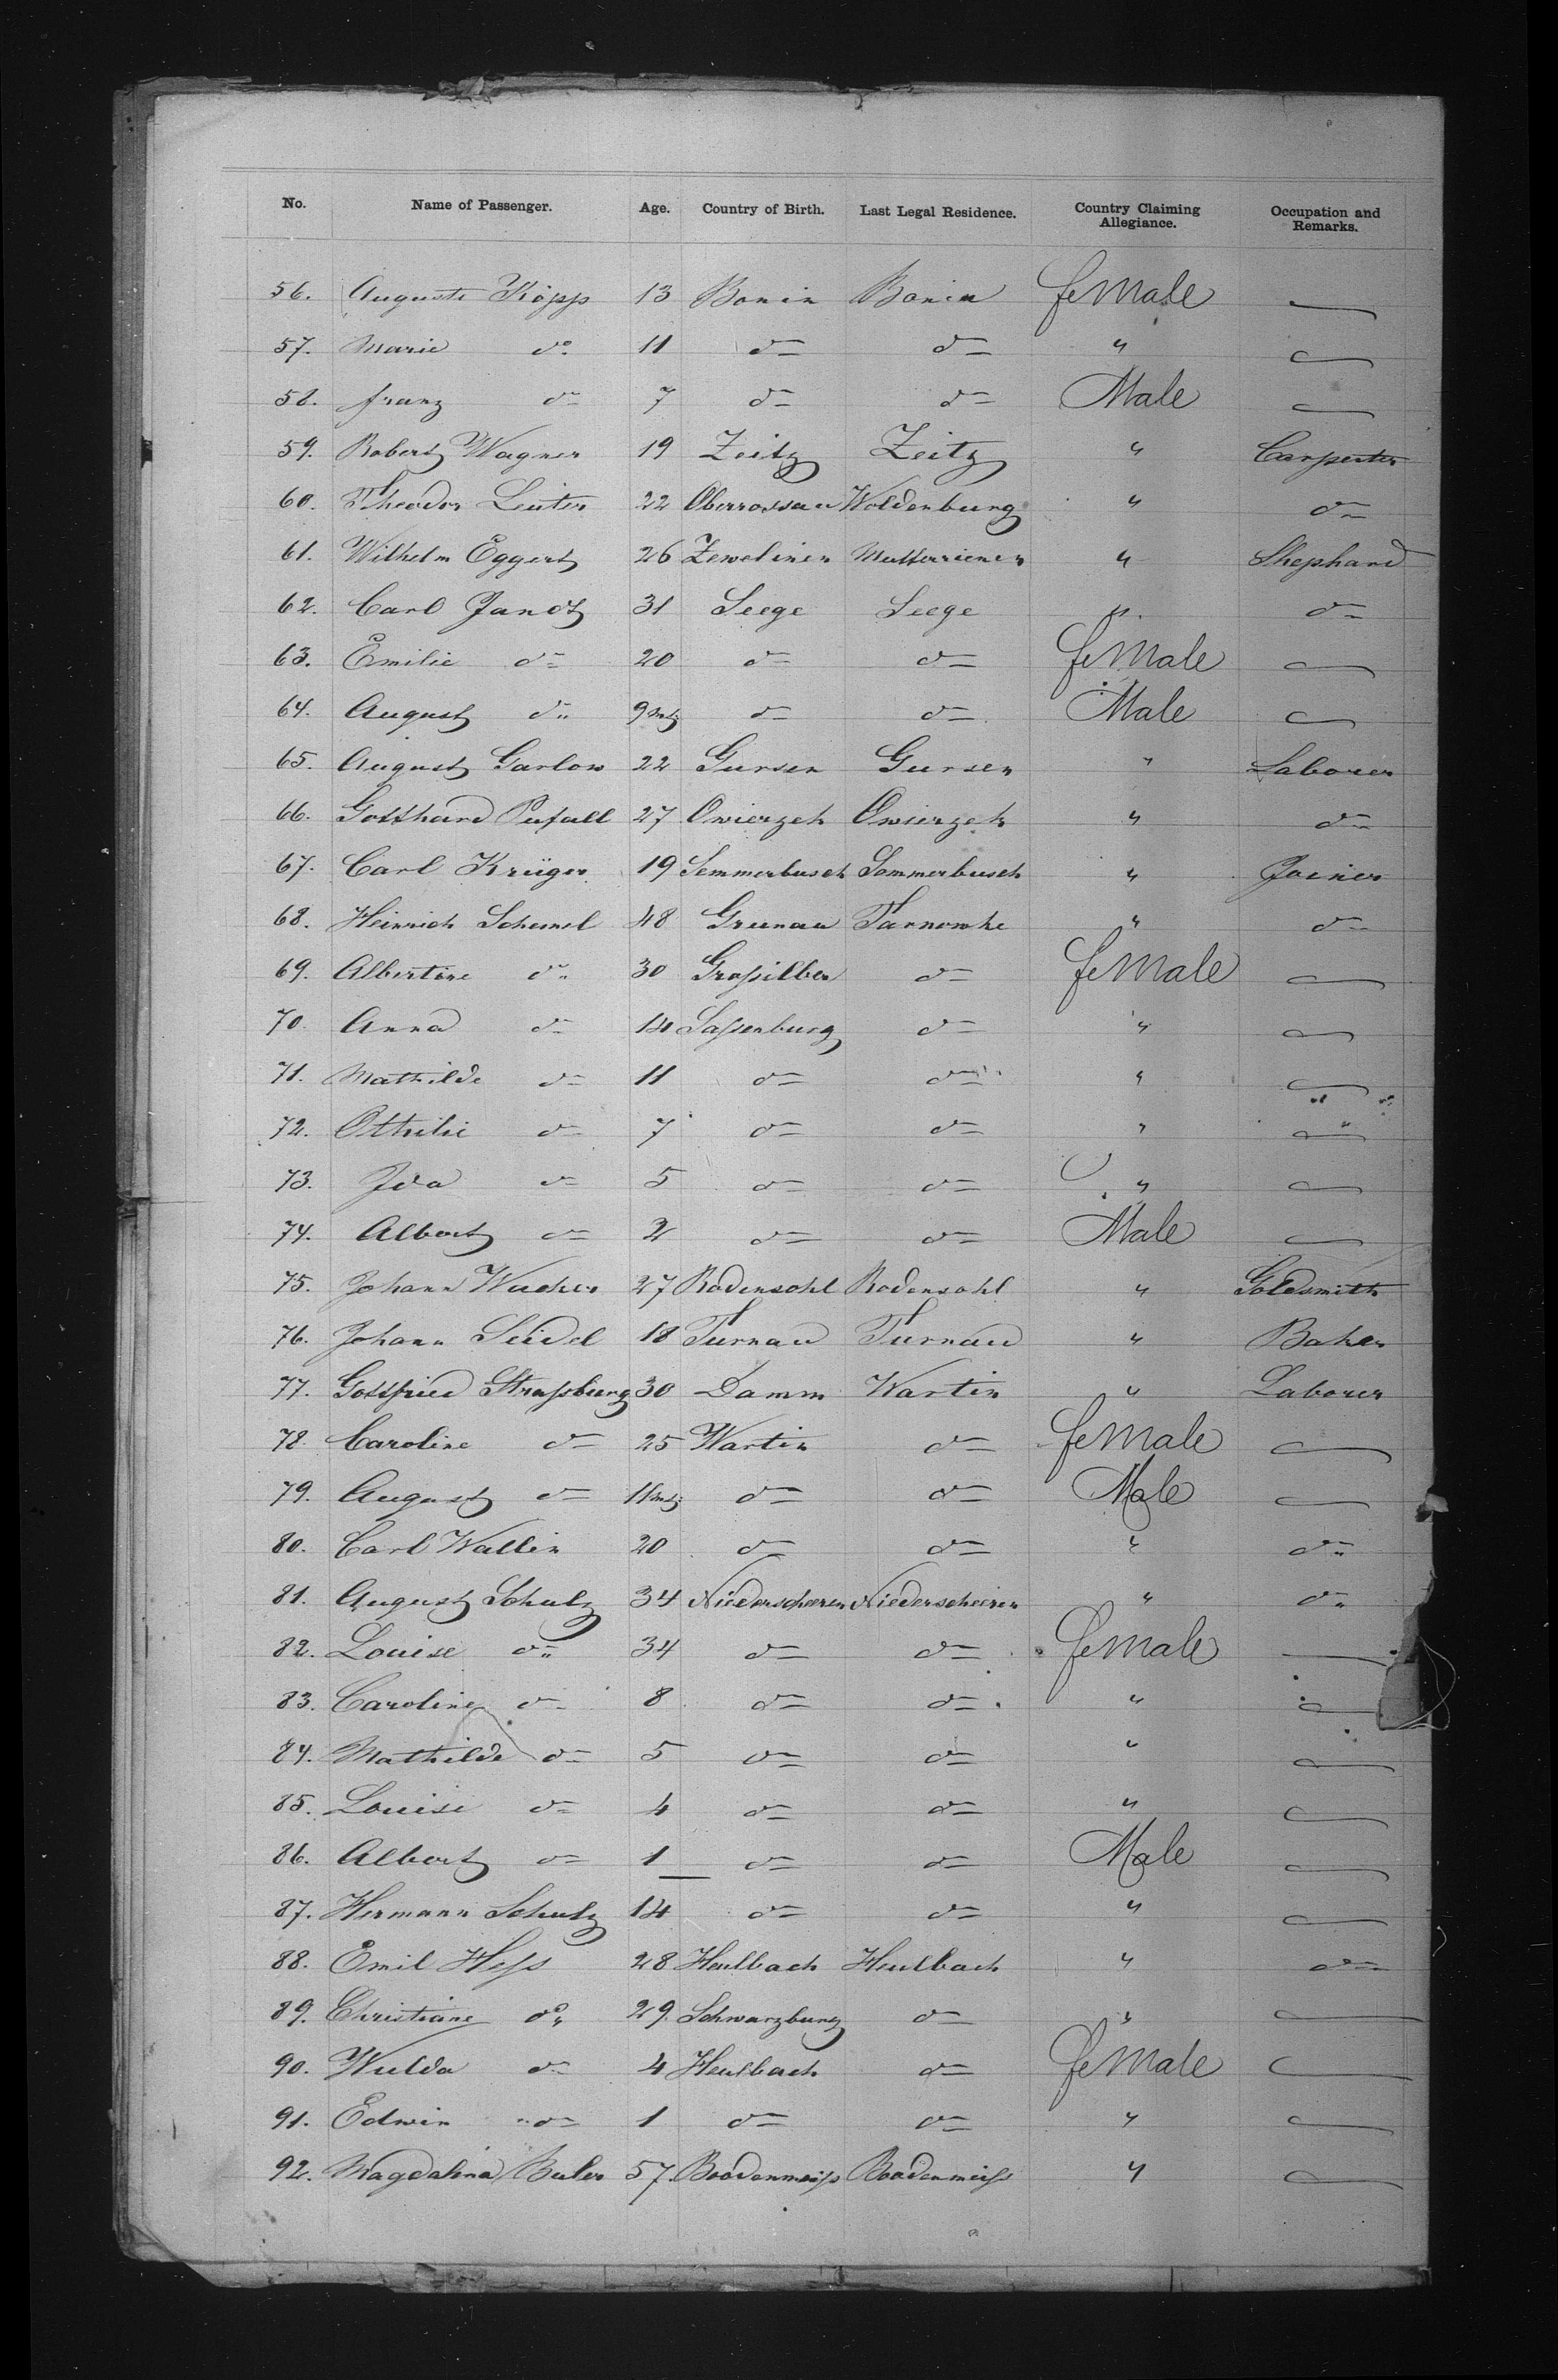 No. Name of Passenger. Age. Country of Birth. Last Legal Residence. Country Claiming Allegiance. Occupation and Remarks.
56. Auguste Köpp 13 Bonin Bonin female —
57. Marie do 11 do do " —
58. franz do 7 do do Male —
59. Robert Wagner 19 Zeitz Zeitz " Carpenter
60. Theodor Leuter 22 Oberrossau Woldenburg " do
61. Wilhelm Eggert 26 Zewelinen Mutterrienen " Shephard
62. Carl Jandt 31 Seege Seege " do
63. Emilie do 20 do do female —
64. August do 9 Mt do do Male —
65. August Garlow 22 Gursen Gursen " Laborer
66. Gotthard Pufall 27 Owierzeh Owierzeh " do
67. Carl Krüger 19 Semmerbusch Sommerbusch " Joiner
68. Heinrich Schemel 48 Grunau Tarnowke " do
69. Albertine do 30 Graßilber do female —
70. Anna do 14 Saßenburg do " —
71. Mathilde do 11 do do " —
72. Ottilie do 7 do do " —
73. Ida do 5 do do " —
74. Albert do 2 do do Male —
75. Johann Wucher 27 Rodensohl Rodensohl " Goldsmith
76. Johann Seidel 18 Turnau Turnau " Baker
77. Gottfried Straßburg 30 Damm Wartin " Laborer
78. Caroline do 25 Wartin do female —
79. August do 11 Mt do do Male —
80. Carl Wallin 20 do do " do
81. August Schulz 34 Niederscheeren Niederscheeren " do
82. Louise do 34 do do female —
83. Caroline do 8 do do " —
84. Mathilde do 5 do do " —
85. Louise do 4 do do " —
86. Albert do 1 do do Male —
87. Hermann Schulz 14 do do " —
88. Emil Heß 28 Heulbach Heulbach " do
89. Christiane do 29 Schwarzburg do " —
90. Wulda do 4 Heulbach do female —
91. Edwin do 1 do do " —
92. Magdalina Buler 57. Boodenmaiß Boadenmeiß " —